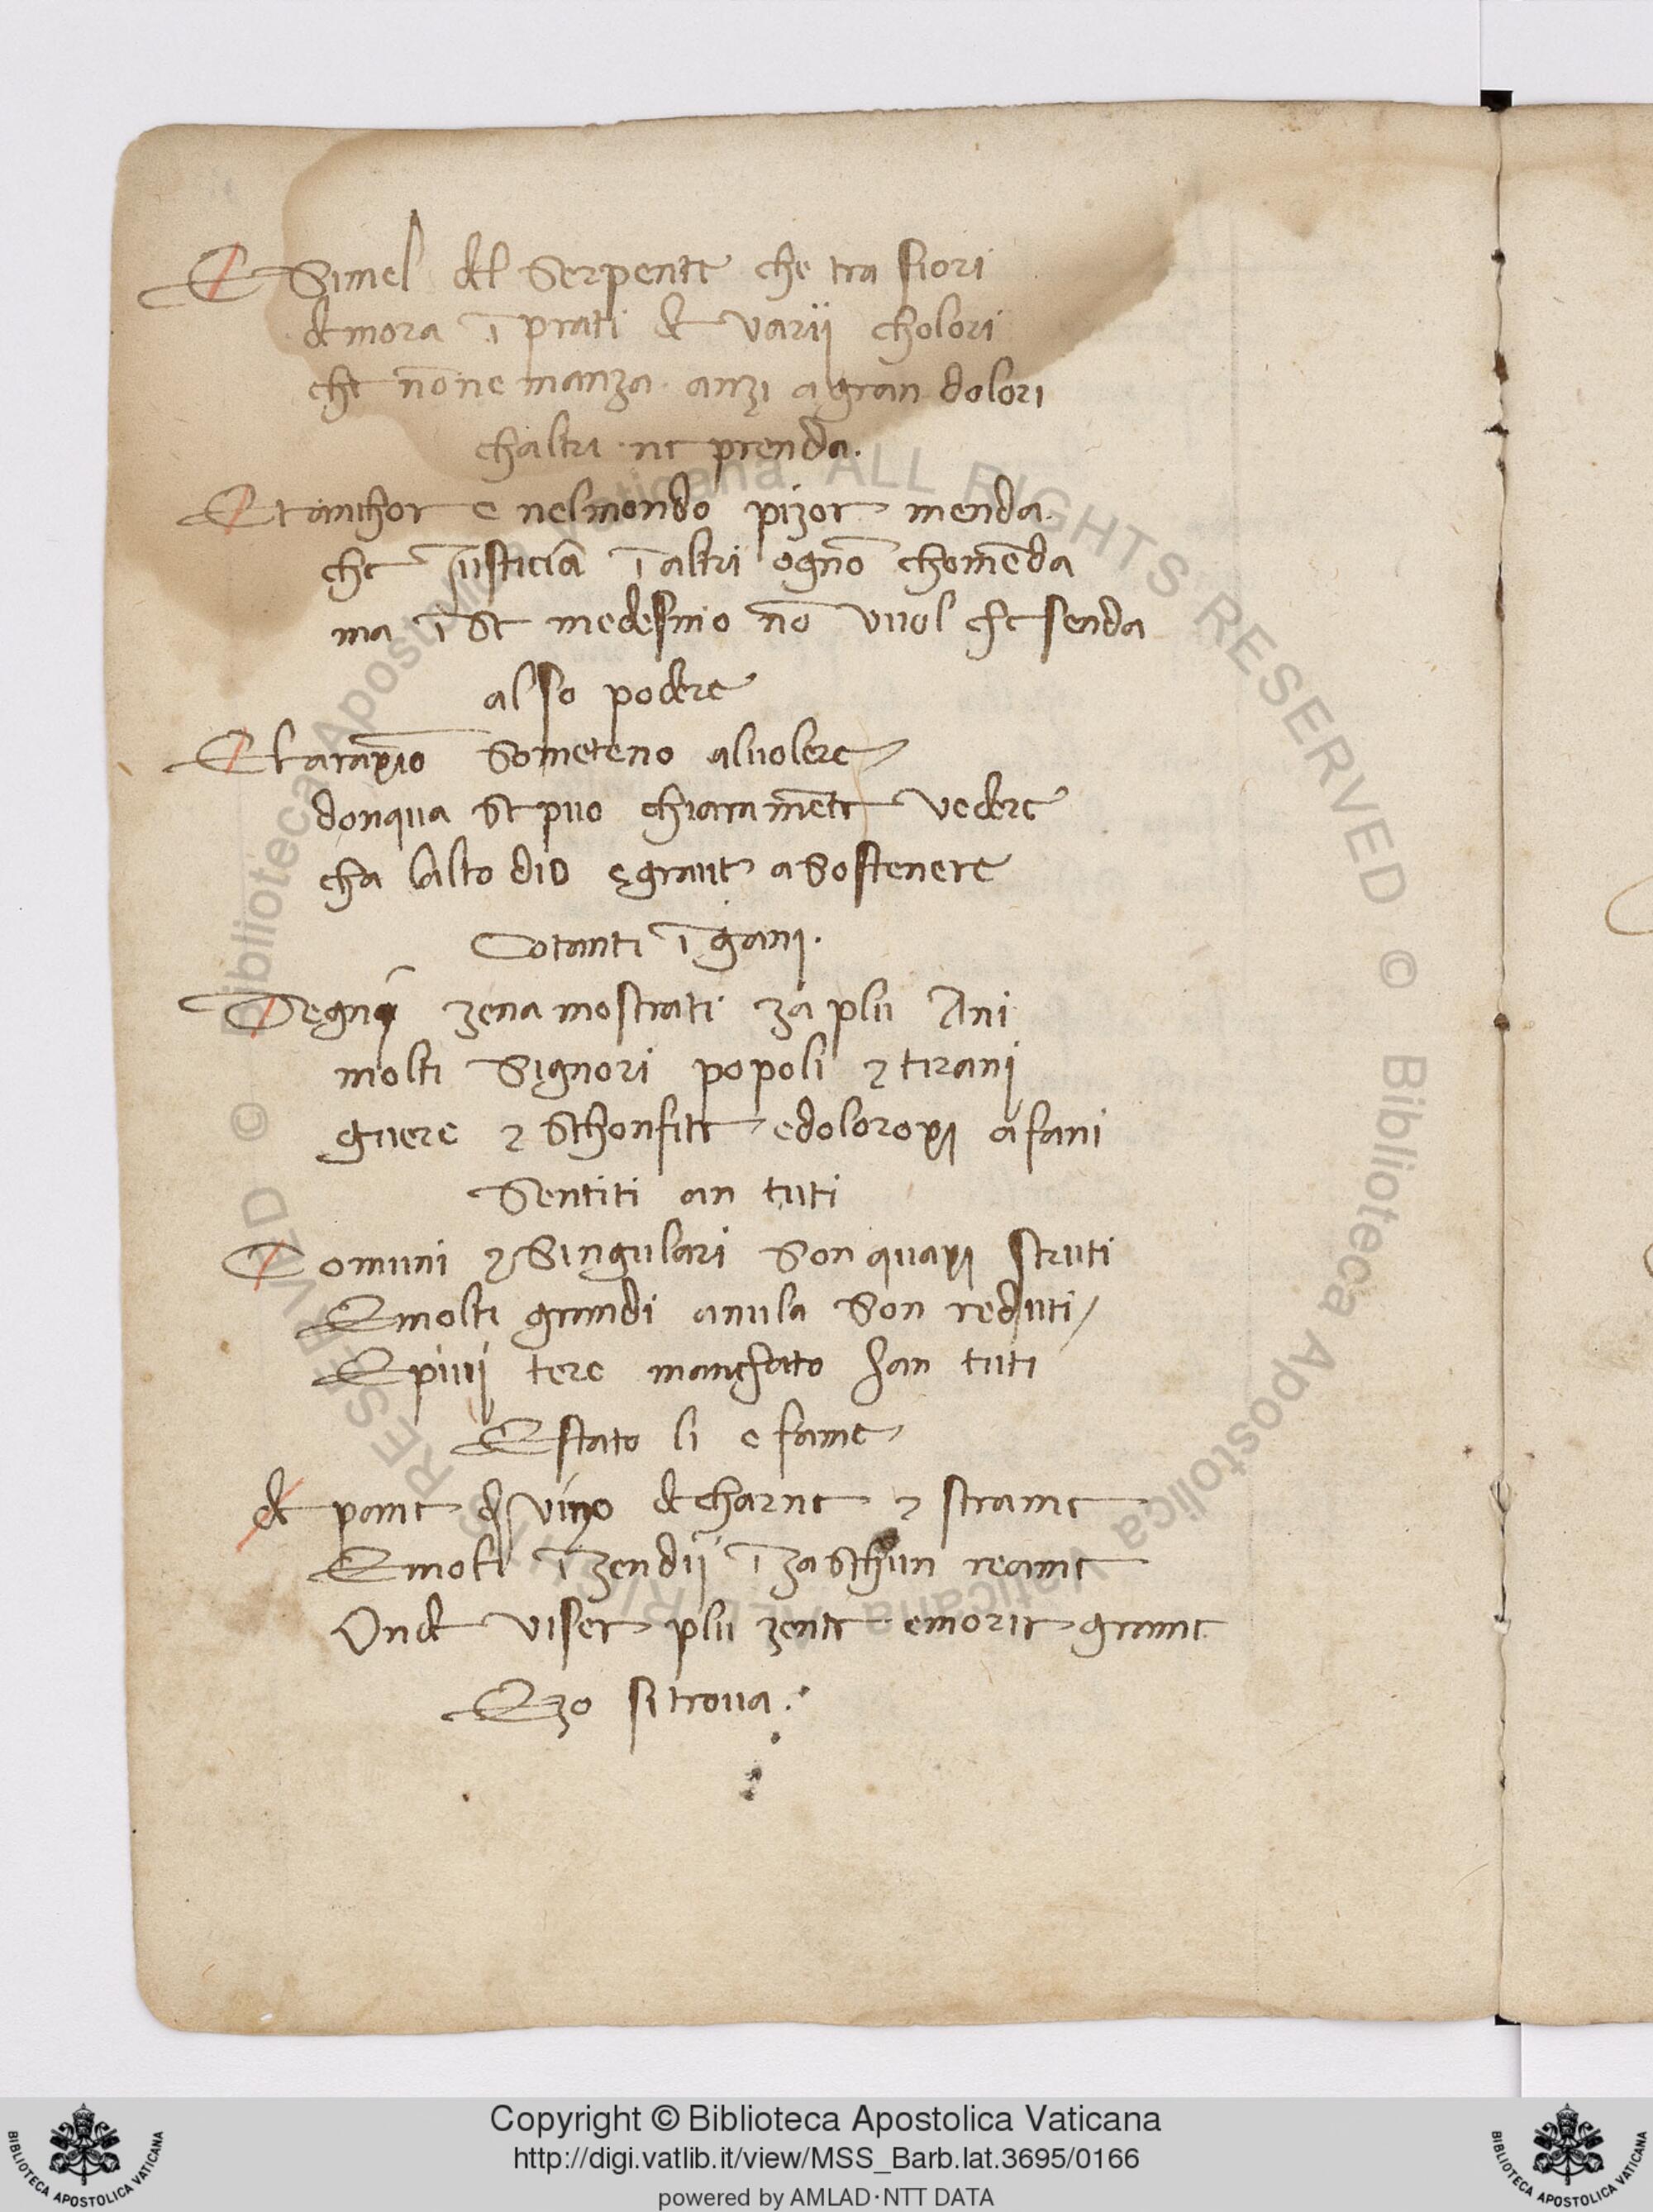 E Simel del Serpente che tra fiori
demora ī prati de varij cholori
che nōne manza. anzi a gran dolori
chaltri ne prenda.
Et anchor e nelmondo pizor menda.
che Iusticia ī altri ognō chomēda
ma ī se medesmo nō vuol che senda
also podere
E laraxiō Someteno alvolere
donqua Se puo chiaramēte vedere
cha lalto dio e grave a Sostenere
Cotanti īgani.
Segni zena mostrati za plu Ani
molti Signori popoli ⁊ tirani
guere ⁊ Schonfite e doloroxi afani
Sentiti an tuti
Comuni ⁊ Singulari Son quaxi struti
E molti grandi anula Son reduti /
E piui tere manchato han tuti
E stato li e fame
de pane de vino de charne ⁊ strame
E molti īzendij īzaschun reame
Onde viser plu zente e morir grame
E zo si trova.
Copyright © Biblioteca Apostolica Vaticana
http://digi.vatlib.it/view/MSS_Barb.lat.3695/0166
powered by AMLAD·NTT DATA
BIBLIOTECA APOSTOLICA VATICANA
BIBLIOTECA APOSTOLICA VATICANA
© Biblioteca Apostolica Vaticana. ALL RIGHTS RESERVED
© Biblioteca Apostolica Vaticana. ALL RIGHTS RESERVED